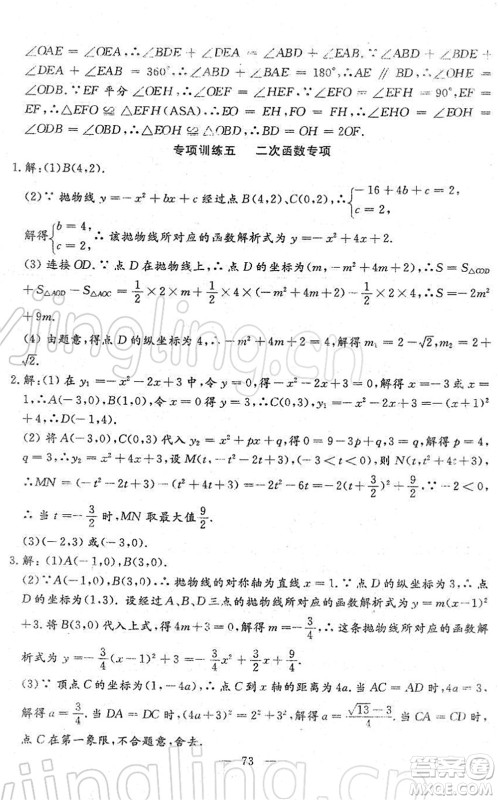 ∠OAE = ∠BDE, ∴ ∠BDE + ∠DEA = ∠ABD + ∠EAB. ∵ ∠BDE +
∠DEA + ∠ABD + ∠EAB = 360°, ∴ ∠ABD + ∠BAE = 180°, ∴ AE ∥ BD, ∴ ∠OHE =
∠ODB. ∵ EF 平分 ∠OEH, ∴ ∠OEF = ∠HEF. ∵ ∠EFO = ∠EFH = 90°, EF =
EF, ∴ △EFO ≌ △EFH (ASA), ∴ EO = EH, FO = FH, ∴ ∠EHO = ∠EOH =
∠ODB = ∠OBD, ∴ △EOH ≌ △ODB, ∴ BD = OH = 2OF.
专项训练五 二次函数专项
1. 解: (1)B(4,2).
(2) ∵ 抛物线 y = −x² + bx + c 经过点 B(4,2), C(0,2), ∴ {−16 + 4b + c = 2, c = 2,
解得 {b = 4, c = 2, ∴ 该抛物线所对应的函数解析式为 y = −x² + 4x + 2.
(3) 连接 OD. ∵ 点 D 在抛物线上, ∴ 点 D 的坐标为 (m, −m² + 4m + 2), ∴ S = S△COD
+ S△AOD − S△AOC = 1/2 × 2 × m + 1/2 × 2 × (−m² + 4m + 2) − 1/2 × 2 × 2, ∴ S = −2m²
+ 9m.
(4) 由题意, 得点 D 的纵坐标为 4, ∴ −m² + 4m + 2 = 4, 解得 m₁ = 2 − √2, m₂ = 2 +
√2.
2. 解: (1) 在 y₁ = −x² − 2x + 3 中, 令 y₁ = 0, 则 −x² − 2x + 3 = 0, 解得 x = −3 或 x =
1, ∴ A(−3,0), B(1,0). 令 x = 0 得 y = 3, ∴ C(0,3). ∵ y₁ = −x² − 2x + 3 = −(x + 1)² +
4, ∴ D(−1,4).
(2) 将 A(−3,0), C(0,3) 代入 y₂ = x² + px + q, 得 9 − 3p + q = 0 且 q = 3, 解得 p = 4,
q = 3, ∴ y₂ = x² + 4x + 3, 设 M(t, −t² − 2t + 3), (−3 < t < 0), 则 N(t, t² + 4t + 3),
∴ MN = (−t² − 2t + 3) − (t² + 4t + 3) = −2t² − 6t = −2(t + 3/2)² + 9/2. ∵ −2 < 0,
∴ 当 t = −3/2 时, MN 取最大值 9/2.
(3)(−2,3) 或 (−3,0).
3. 解: (1)A(−1,0), B(3,0).
(2) ∵ A(−1,0), B(3,0), ∴ 抛物线的对称轴为直线 x = 1. ∵ 点 D 的纵坐标为 3, ∴ 点 D
的坐标为 (1,3). 设经过 A、B、D 三点的抛物线所对应的函数解析式为 y = m(x − 1)² +
3. 将 B(3,0) 代入上式, 得 4m + 3 = 0, 解得 m = −3/4, ∴ 这条抛物线所对应的函数解
析式为 y = −3/4(x − 1)² + 3 = −3/4x² + 3/2x + 9/4.
(3) ∵ 顶点 C 的坐标为 (1, −4a), ∴ 点 C 到 x 轴的距离为 4a. 当 AC = AD 时, 4a = 3,
解得 a = 3/4. 当 DA = DC 时, 4a + 3 = √13, 解得 a = (√13 − 3)/4. 当 CA = CD 时,
点 C 在第一象限, 不合题意, 舍去.
— 73 —